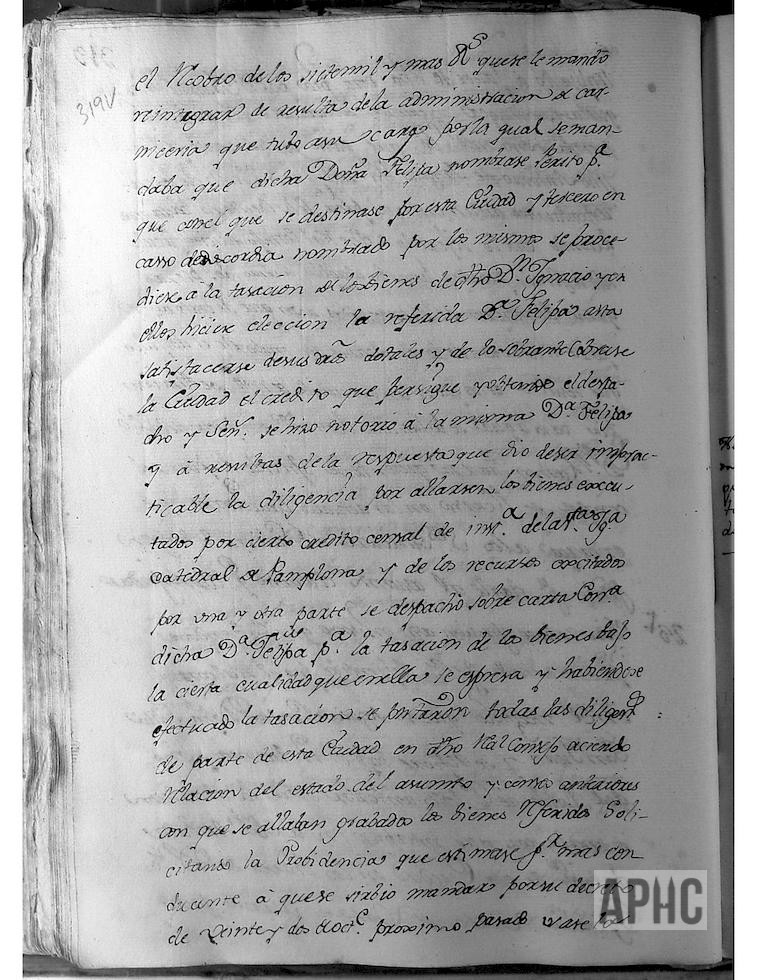 319V
el Recobro de los sietemil y mas Rs quese le mando
reintegrar de resulta dela administracion de car-
niceria que tubo asu cargo por la qual seman-
daba que dicha Doña Felipa nombrase Perito pa
que conel que se destinase por esta Ciudad y tercero en
casso dediscordia nombrado por los mismos se proce-
diese á la tasacion de los bienes de dho Dn Ygnacio y en
ellos hiciese eleccion la referida Da Felipa asta
satisfacerse desus dros dotales y de lo sobrante Cobrase
la Ciudad el credito que persigue y obtenido el despa-
cho y Señ. se hizo notorio á la misma Da Felipa
y á resultas dela respuesta que dio deser imprac-
ticable la diligencia por allarsen los bienes execu-
tados por cierto credito censal de insta dela Sta Yga
Catedral de Pamplona y de los recursos excitados
por una y otra parte se despachó sobre carta Contra
dicha Da Felipa pa la tasacion de los bienes bajo
la cierta cualidad que en ella se espresa y habiendose
efectuado la tasacion se portaron todas las diligens
de parte de esta Ciudad en dho Real Consejo aciendo
Relacion del estado del asumto y censos anteriores
con que se allaban grabados los bienes Referidos Soli-
citando la Probidencia que estimase pr mas con
ducente á quese sirbio mandar por su decreto
de Veinte y dos Octe proximo pasado usase los
APHC